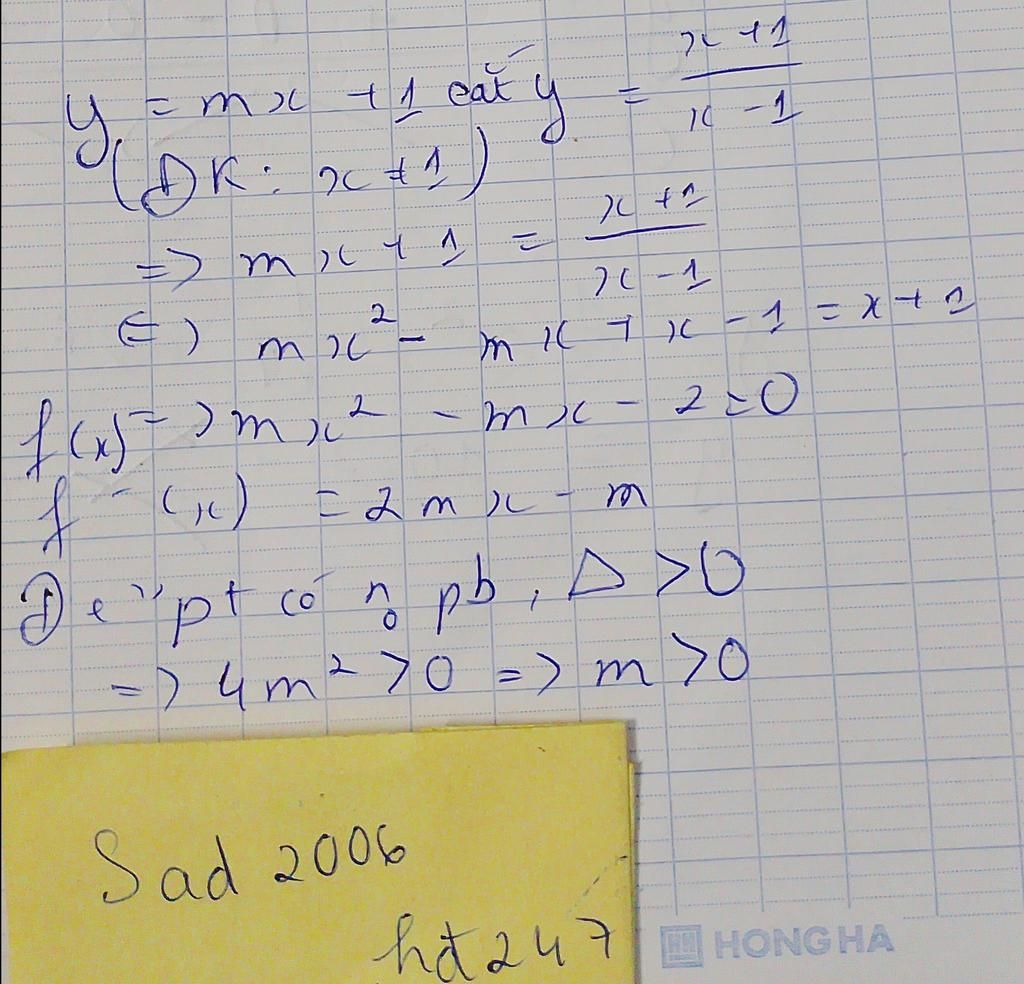 y = mx + 1 cắt y = \frac{x+1}{x-1}
(ĐK: x ≠ 1)
=> mx + 1 = \frac{x+1}{x-1}
<=> mx² - mx + x - 1 = x + 1
f(x) => mx² - mx - 2 = 0
f'(x) = 2mx - m
Để pt có n₀ pb, Δ > 0
=> 4m² > 0 => m > 0
Sad 2006
hđ 247
HONG HA